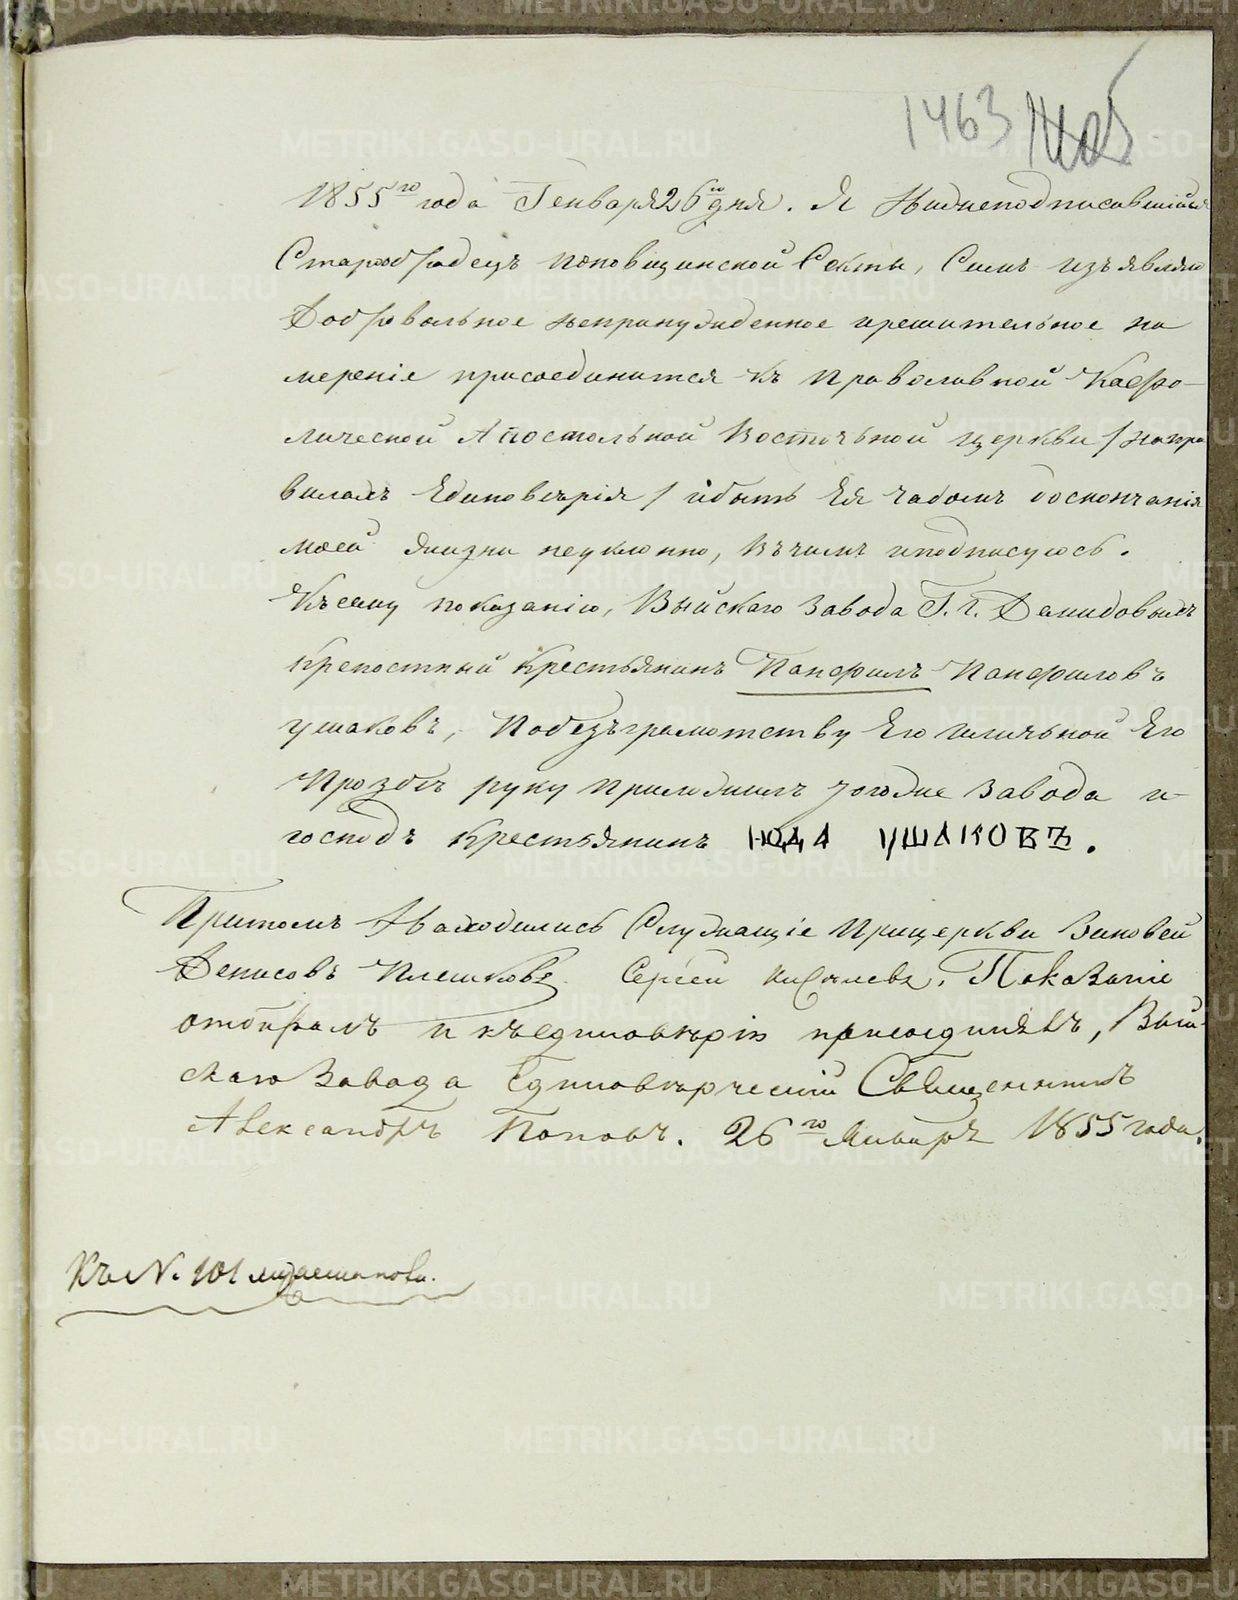 1463
1855го года Генваря 26го дня. Я нижеподписавшійся
Старообрядецъ поповщинской Секты, Симъ изъявляю
Добровольное непринужденное ирешительное на
мереніе присоединится къ Православной Каѳо-
лической Апостольной Восточьной церкви /напра
виламъ Единоверія/ ибыть Ея чадомъ доскончанія
моей жизни неуклонно, Въчимъ иподписуюсь.
Късему показанію, Выйскаго Завода Г.г. Демидовыхъ
Крепостный Крестьянинъ Панфилъ Панфиловъ
ушаковъ, Победъграмотству Его иличьной Его
Прозбѣ руку Приложилъ тогоже Завода и
господъ Крестьянинъ ІЮДА УШАКОВЪ.
Притомъ находились Служащіе Прицеркви Зиновей
Денисовъ Плешковъ Сергей Киселевъ. Показаніе
отобралъ и къединоверію присоединялъ, Вый-
скаго Завода Единоверческій Священникъ
Александръ Поповъ. 26го Январѣ 1855 года.
Къ N. 101
METRIKI.GASO-URAL.RU